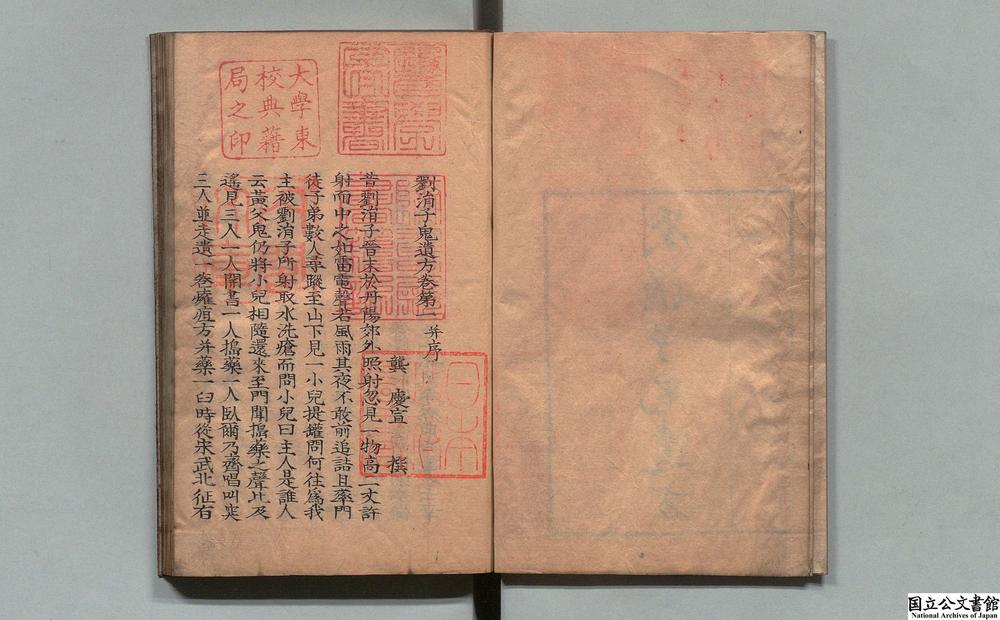 劉涓子鬼遺方卷第一 并序
龔慶宣 撰
昔劉涓子晉末於丹陽郊外照射忽見一物高二丈許
射而中之如雷電聲若風雨其夜不敢前追詰旦率門
徒子弟數人尋蹤至山下見一小兒提罐問何往為我
主被劉涓子所射取水洗瘡而問小兒曰主人是誰人
云黃父鬼仍將小兒相隨還來至門聞搗藥之聲比及
遙見三人一人開書一人搗藥一人臥爾乃齊唱叫突
三人並走遺一卷癰疽方并藥一臼時從宋武北征有
大學東
校典藉
局之印
日本
國立公文書館
National Archives of Japan